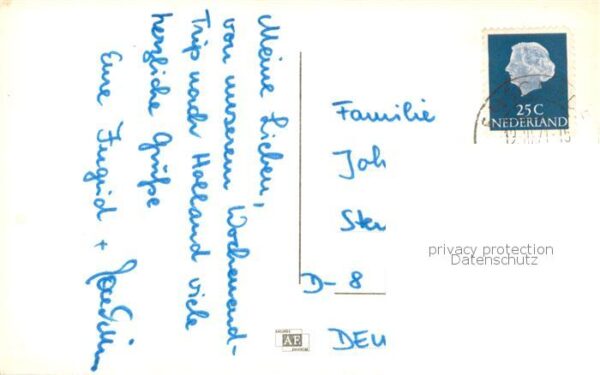 Meine Lieben,
von unserem Wochenend-
Trip nach Holland viele
herzliche Grüße
Eure Ingrid +
25 C
NEDERLAND
Familie
Joh
Ster
D- 8
DEU
privacy protection
Datenschutz
AE